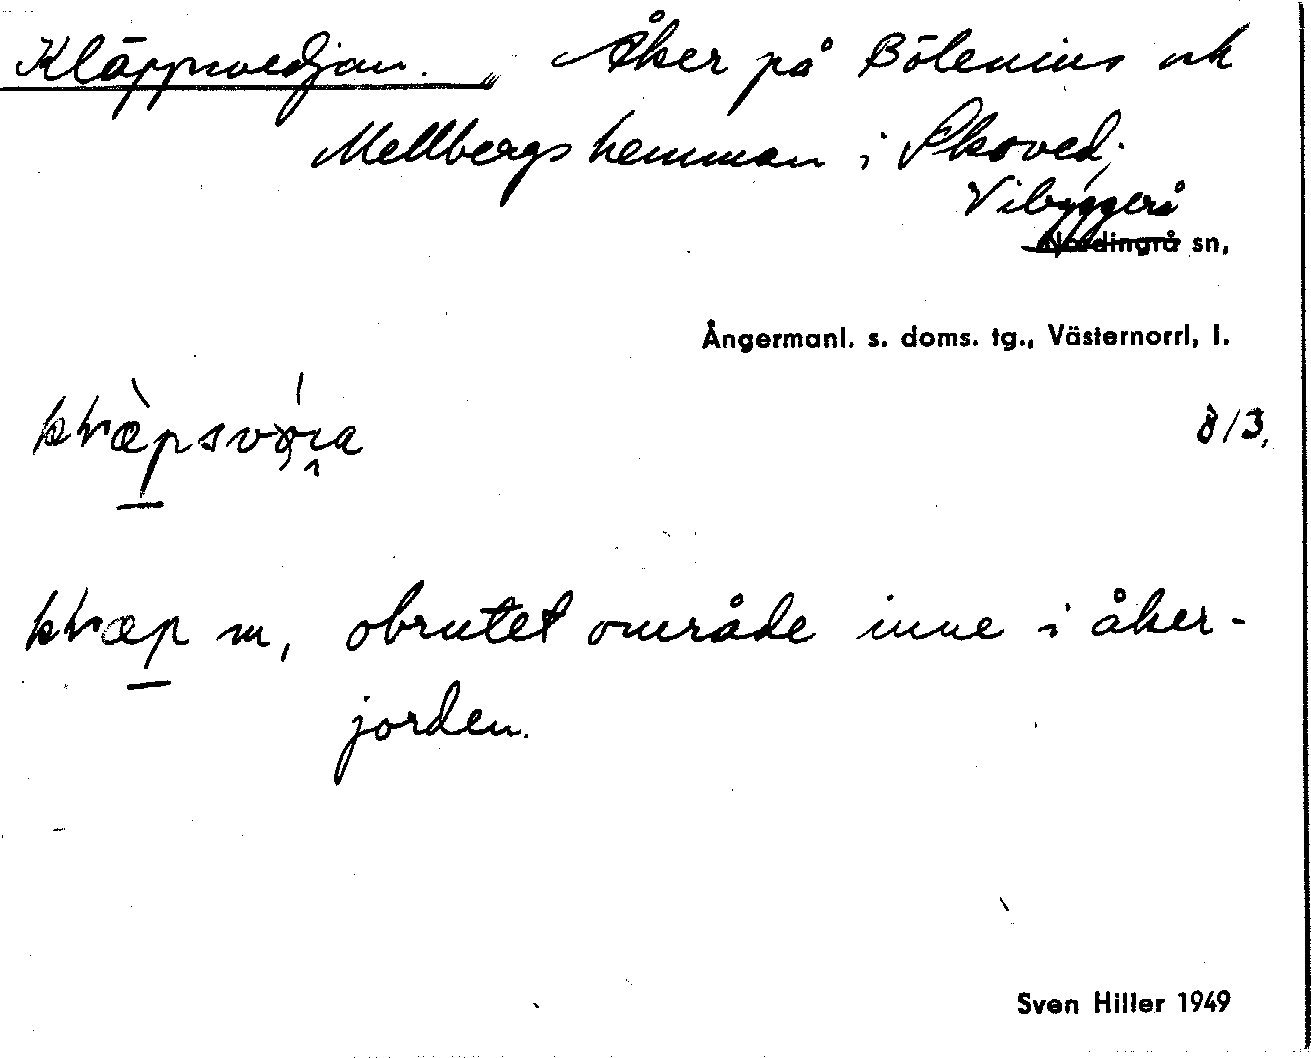 Kläppsvedjan. Åker på Bölenius ok
Mellbergs hemman i Skoved,
Vibyggerå
Nordingrå sn,
Ångermanl. s. doms. tg., Västernorrl, l.
8/3,
m, obrutet område inne i åker-
jorden.
Sven Hiller 1949